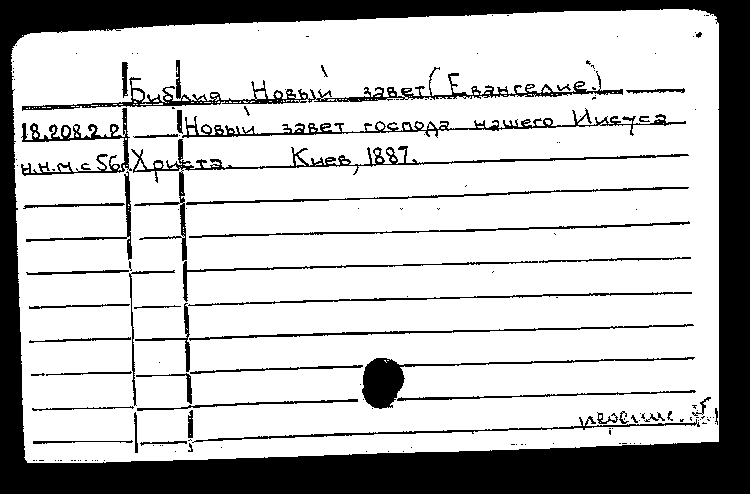 Библия. Новый завет (Евангелие.)
18.208.2.2. Новый завет господа нашего Иисуса
н.н.м.с 56. Христа. Киев, 1887.
перепис.